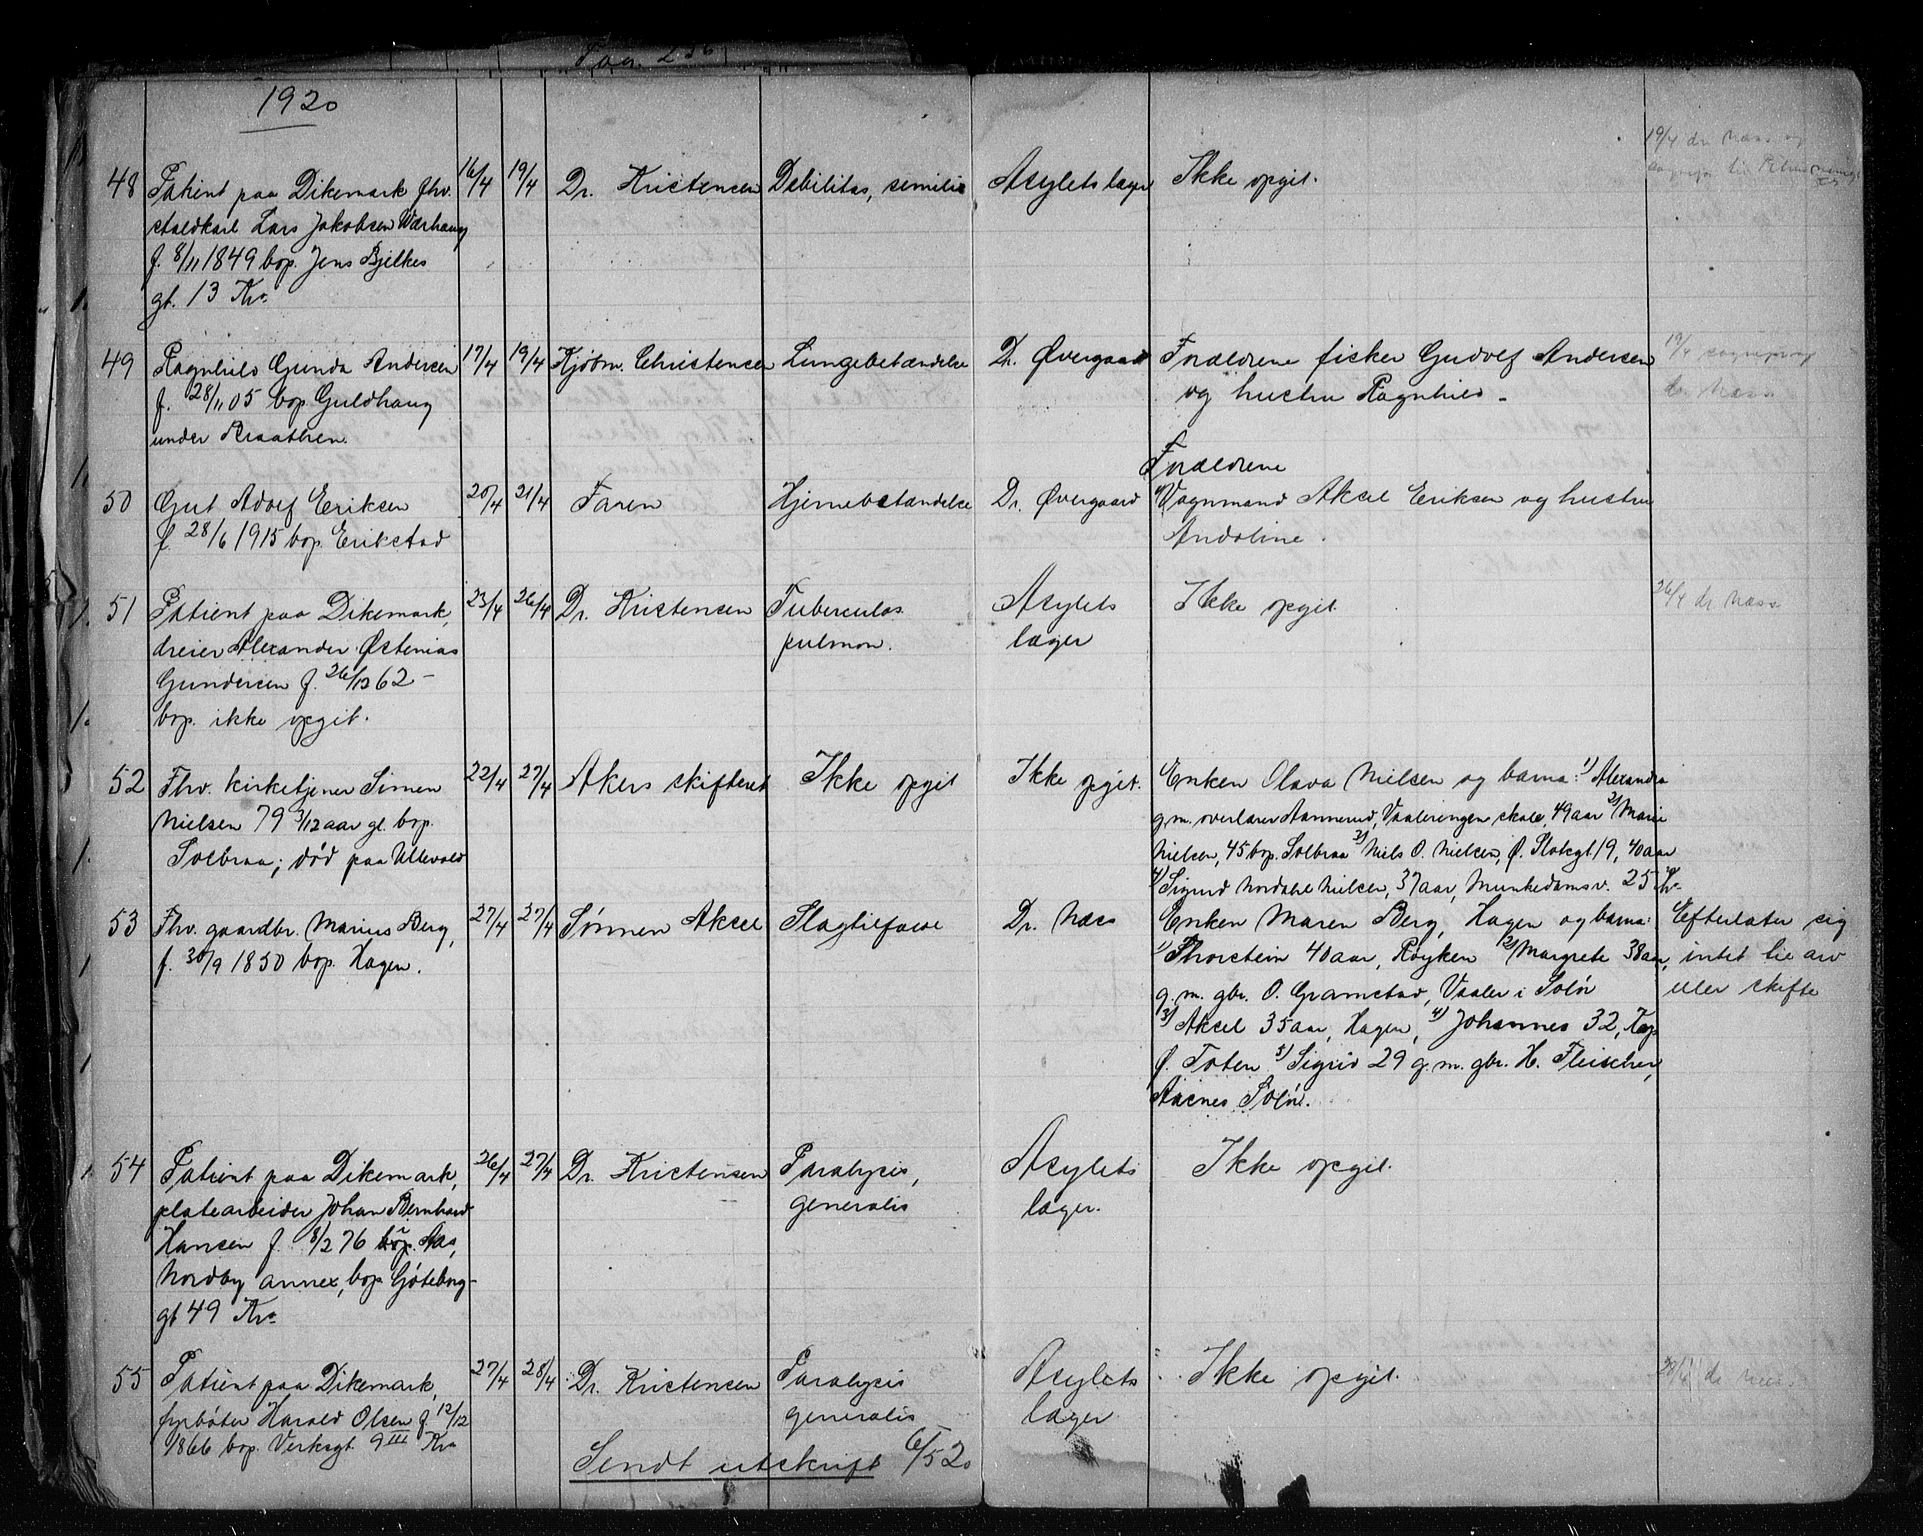 1920
48 Patient paa Dikemark fhv. 16/4 19/4 Dr. Kristensen Debilitas, senilis Asylets læge Ikke opgit.
staldkarl Lars Jakobsen Værhaug
f. 8/11 1849 bop. Jens Bjelkes
gt. 13 Kra
19/4 dr. Næss og
49 Ragnhild Gunda Andersen 17/4 19/4 Kjøbm. Christensen Lungebetændelse Dr. Øvergaard Forældrene fisker Gudolf Andersen
f. 28/11 05 bop. Guldhaug og hustru Ragnhild.
under Braathen.
19/4
dr. Næss
Forældrene
50 Gut Adolf Eriksen 20/4 21/4 Faren Hjernebetændelse Dr. Øvergaard Vognmand Aksel Eriksen og hustru
f. 28/6 1915 bop. Erikstad Andoline.
51 Patient paa Dikemark, 23/4 26/4 Dr. Kristensen Tuberculos. Asylets Ikke opgit. 26/4 dr. Næss
dreier Alexander Østenius pulmon. læger
Gundersen f. 26/12 62 -
bop. ikke opgit.
52 Fhv. kirketjener Simen 22/4 27/4 Akers skifteret Ikke opgit Ikke opgit. Enken Olava Nielsen og barna: 1) Alexandra
Nielsen 79 3/12 aar gl. bop. g. m. overlærer Aannerud, Vaalerengen skole, 49 aar 2) Marie
Solbraa; død paa Ullevold Nielsen, 45 bop. Solbraa 3) Niels O. Nielsen, Ø. Slotsgt 19, 40 aar
4) Sigurd Nordahl Nielsen, 37 aar, Munkedamsv. 25 Kra
53 Fhv. gaardbr. Marius Berg, 27/4 27/4 Sønnen Aksel Slagtilfælde Dr. Næss Enken Maren Berg, Hagen og barna: Efterlater sig
f. 30/9 1850 bop. Hagen. 1) Thorstein 40 aar, Røyken 2) Margrete 38 aar, intet til arv
g. m. gbr. O. Gramstad, Vaaler i Solør eller skifte
3) Aksel 35 aar, Hagen, 4) Johannes 32, Kap
Ø. Toten 5) Sigrid 29 g. m. gbr. H. Fleischer,
Aasnes, Solør.
54 Patient paa Dikemark, 26/4 27/4 Dr. Kristensen Paralysis, Asylets Ikke opgit.
platearbeider Johan Bernhard generalis læger.
Hansen f. 8/2 76 i Aas,
Nordby annex, bop. Gøteborg-
gt 49 Kra
55 Patient paa Dikemark, 27/4 28/4 Dr. Kristensen Paralysis Asylets Ikke opgit. 28/4 dr. Næss
fyrbøter Harald Olsen f. 12/12 generalis læger
1866 bop. Verksgt. 9 III Kra
Sendt utskrift 6/5 20